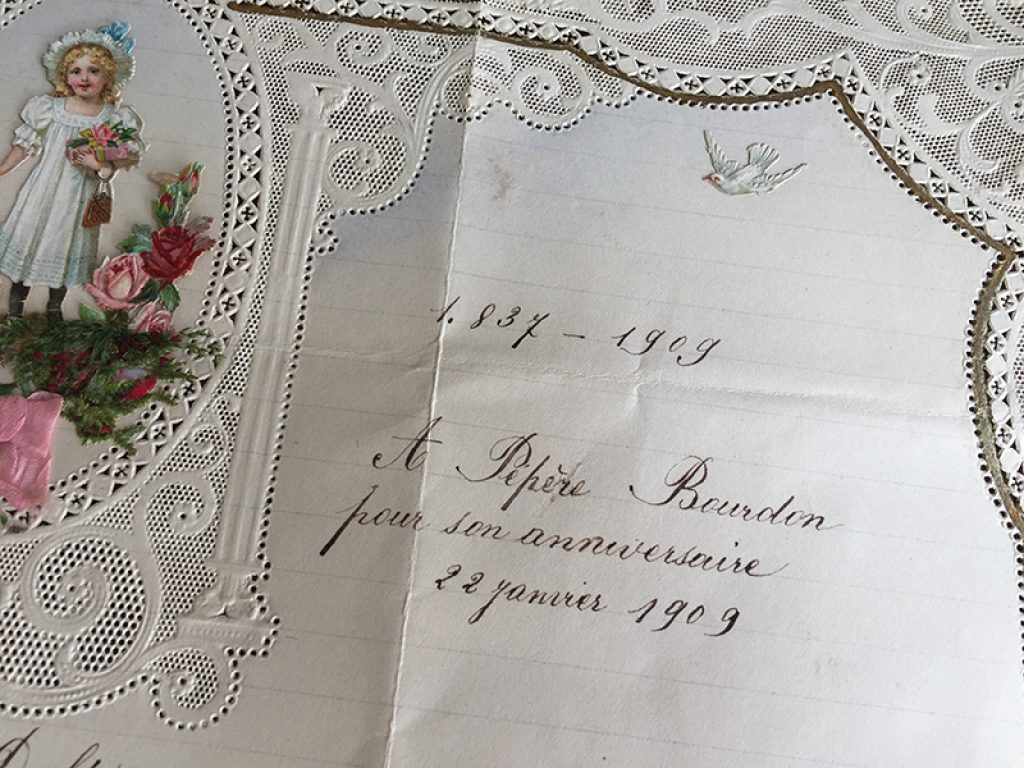 1.837 - 1909
A Pépère Bourdon
pour son anniversaire
22 janvier 1909